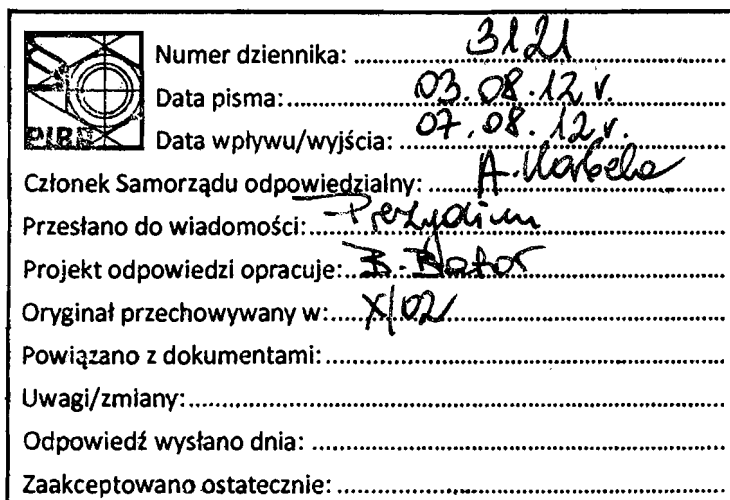 PIBR
Numer dziennika: 3121
Data pisma: 03.08.12 r.
Data wpływu/wyjścia: 07.08.12 r.
Członek Samorządu odpowiedzialny: A.
Przesłano do wiadomości: - Prezydium
Projekt odpowiedzi opracuje: B. Bator
Oryginał przechowywany w: X/02
Powiązano z dokumentami:
Uwagi/zmiany:
Odpowiedź wysłano dnia:
Zaakceptowano ostatecznie: